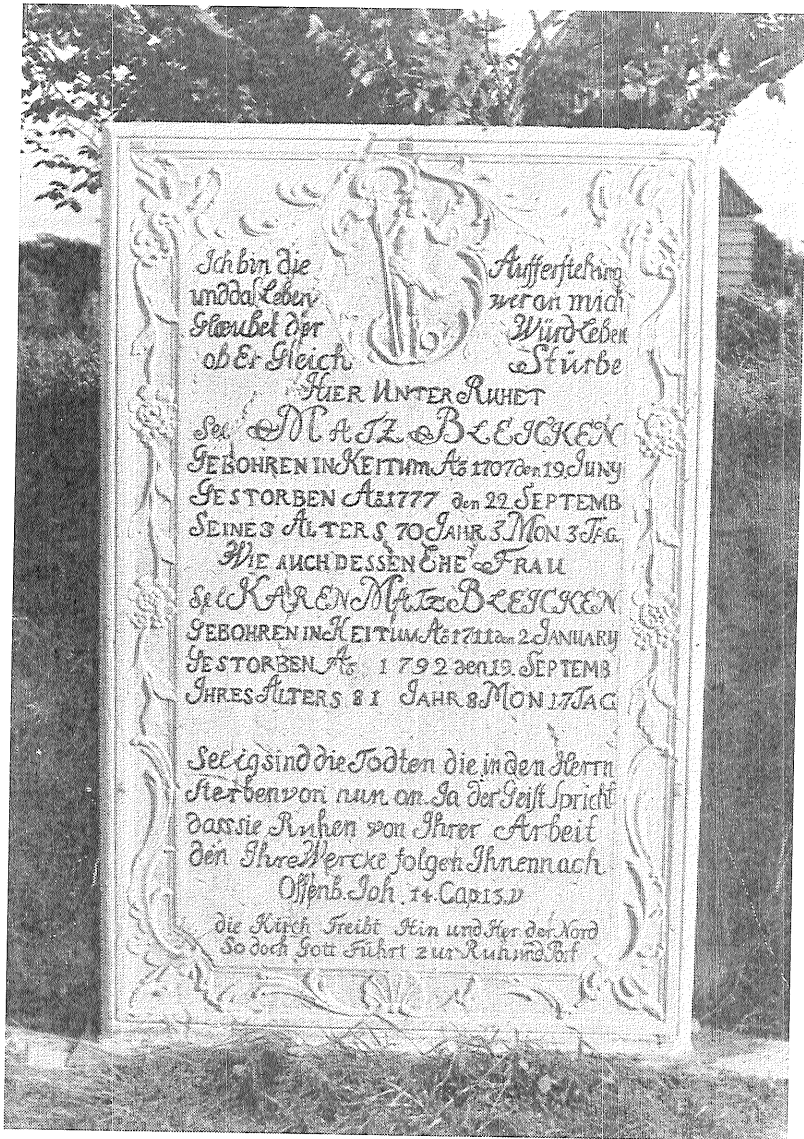 Ich bin die Aufferstehung
und das Leben wer an mich
Glæubet der Würd Leben
ob Er Gleich Stürbe
HIER UNTER RUHET
Sel MATZ BLEICKEN
GEBOHREN IN KEITUM Ao 1707 den 19. JUNY
GESTORBEN Ao 1777 den 22 SEPTEMB
SEINES ALTERS 70 JAHR 3 MON 3 TAG
WIE AUCH DESSEN EHE FRAU
Sel KAREN MATZ BLEICKEN
GEBOHREN IN KEITUM Ao 1711 den 2 JANUARY
GESTORBEN Ao 1792 den 19. SEPTEMB
IHRES ALTERS 81 JAHR 8 MON 17 TAG
Selig sind die Todten die in den Herrn
sterben von nun an. Ja der Geist spricht
dass sie Ruhen von Ihrer Arbeit
den Ihre Wercke folgen Ihnen nach
Offenb. Joh. 14. Cap 13. V
die Kirch Treibt Hin und Her der Nord
So doch Gott Führt zur Ruh und Port